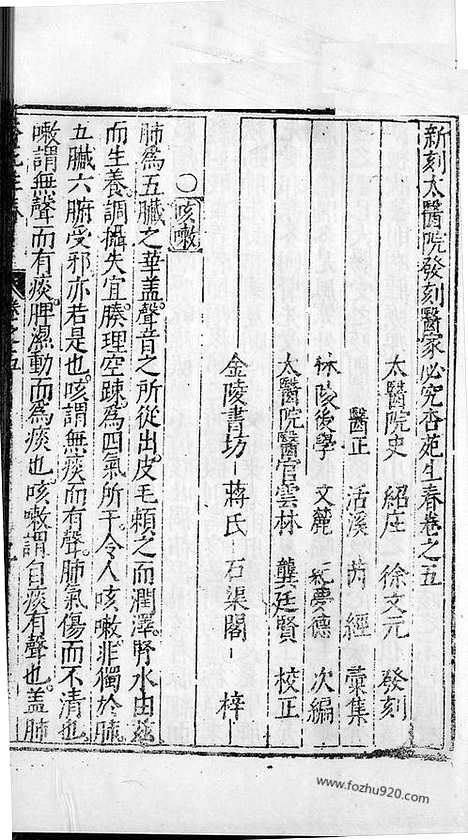 新刻太醫院發刻醫家必究杏苑生春卷之五
太醫院史 紹庄 徐文元 發刻
醫正 活溪 芮 經 彙集
秣陵後學 文麓 紀夢德 次編
太醫院醫官雲林 龔廷賢 校正
金陵書坊 蔣氏 石渠閣 梓
○咳嗽
肺為五臟之華盖聲音之所從出皮毛賴之而潤澤腎水由玆
而生養調攝失宜腠理空踈為四氣所干令人咳嗽非獨於肺
五臟六腑受邪亦若是也咳謂無痰而有聲肺氣傷而不清也
嗽謂無聲而有痰脾濕動而為痰也咳嗽謂有痰有聲也盖肺
www.fozhu920.com